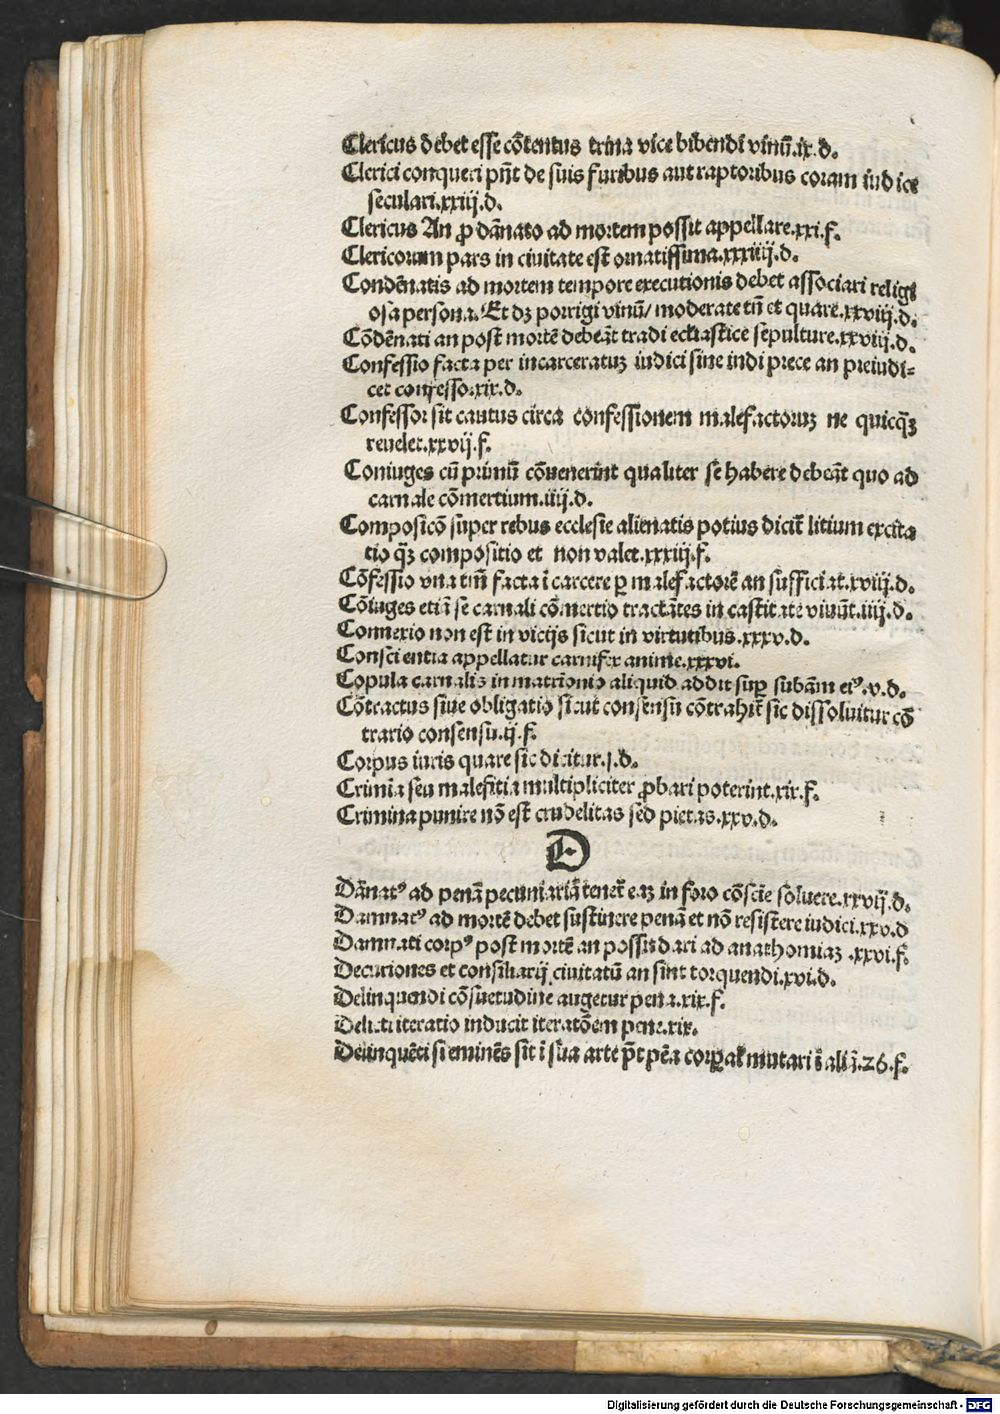 Clericus debet esse cōtentus trina vice bibendi vinū.ix.d.
Clerici conqueri pn̄t de suis furibus aut raptoribus coram iudice
seculari.xxiij.d.
Clericus An ꝓ dānato ad mortem possit appellare.xxi.f.
Clericorum pars in ciuitate est ornatissima.xxxiiij.d.
Condēnatis ad mortem tempore executionis debet associari religi
osa persona. Et dꝫ porrigi vinū/ moderate tn̄ et quare.xxviij.d.
Cōdēnati an post mortē debeāt tradi ecclastice sepulture.xxviij.d.
Confessio facta per incarceratuꝫ iudici sine indi prece an preiudi-
cet confesso.xix.d.
Confessor sit cautus circa confessionem malefactoruꝫ ne quicq̄ꝫ
reuelet.xxvij.f.
Coniuges cū primū cōuenerint qualiter se habere debeāt quo ad
carnale cōmertium.iiij.d.
Composicō super rebus ecclesie alienatis potius dicit̄ litium excita
tio q̄ꝫ compositio et non valet.xxxiij.f.
Cōfessio vna tm̄ facta ī carcere ꝑ malefactorē an sufficiat.xviij.d.
Cōiuges etiā se carnali cōmertio tractātes in castitate viuūt.iiij.d.
Connexio non est in vicijs sicut in virtutibus.xxxv.d.
Consci entia appellatur carnifex anime.xxxvi.
Copula carnalis in matrīonio aliquid addit suꝑ subām eiꝰ.v.d.
Cōtractus siue obligatio sicut consensu cōtrahit̄ sic dissoluitur cō
trario consensu.ij.f.
Corpus iuris quare sic dicitur.j.d.
Crimīa seu malefitia multipliciter ꝓbari poterint.xix.f.
Crimina punire nō est crudelitas sed pietas.xxv.d.
D
Dānatꝰ ad penā pecuniariā tenet̄ eaꝫ in foro cōscīe soluere.xxvij.d.
Damnatꝰ ad mortē debet sustinere penā et nō resistere iudici.xxv.d
Damnati corpꝰ post mortē an possit dari ad anathomiaꝫ .xxvi.f.
Decuriones et consiliarij ciuitatū an sint torquendi.xvi.d.
Delinquendi cōsuetudine augetur pena.xix.f.
Delicti iteratio inducit iteratōem pene.xix.
Delinquēti si eminēs sit ī sua arte pt̄ pēa corꝑal' mutari ī aliā.26.f.
Digitalisierung gefördert durch die Deutsche Forschungsgemeinschaft - DFG